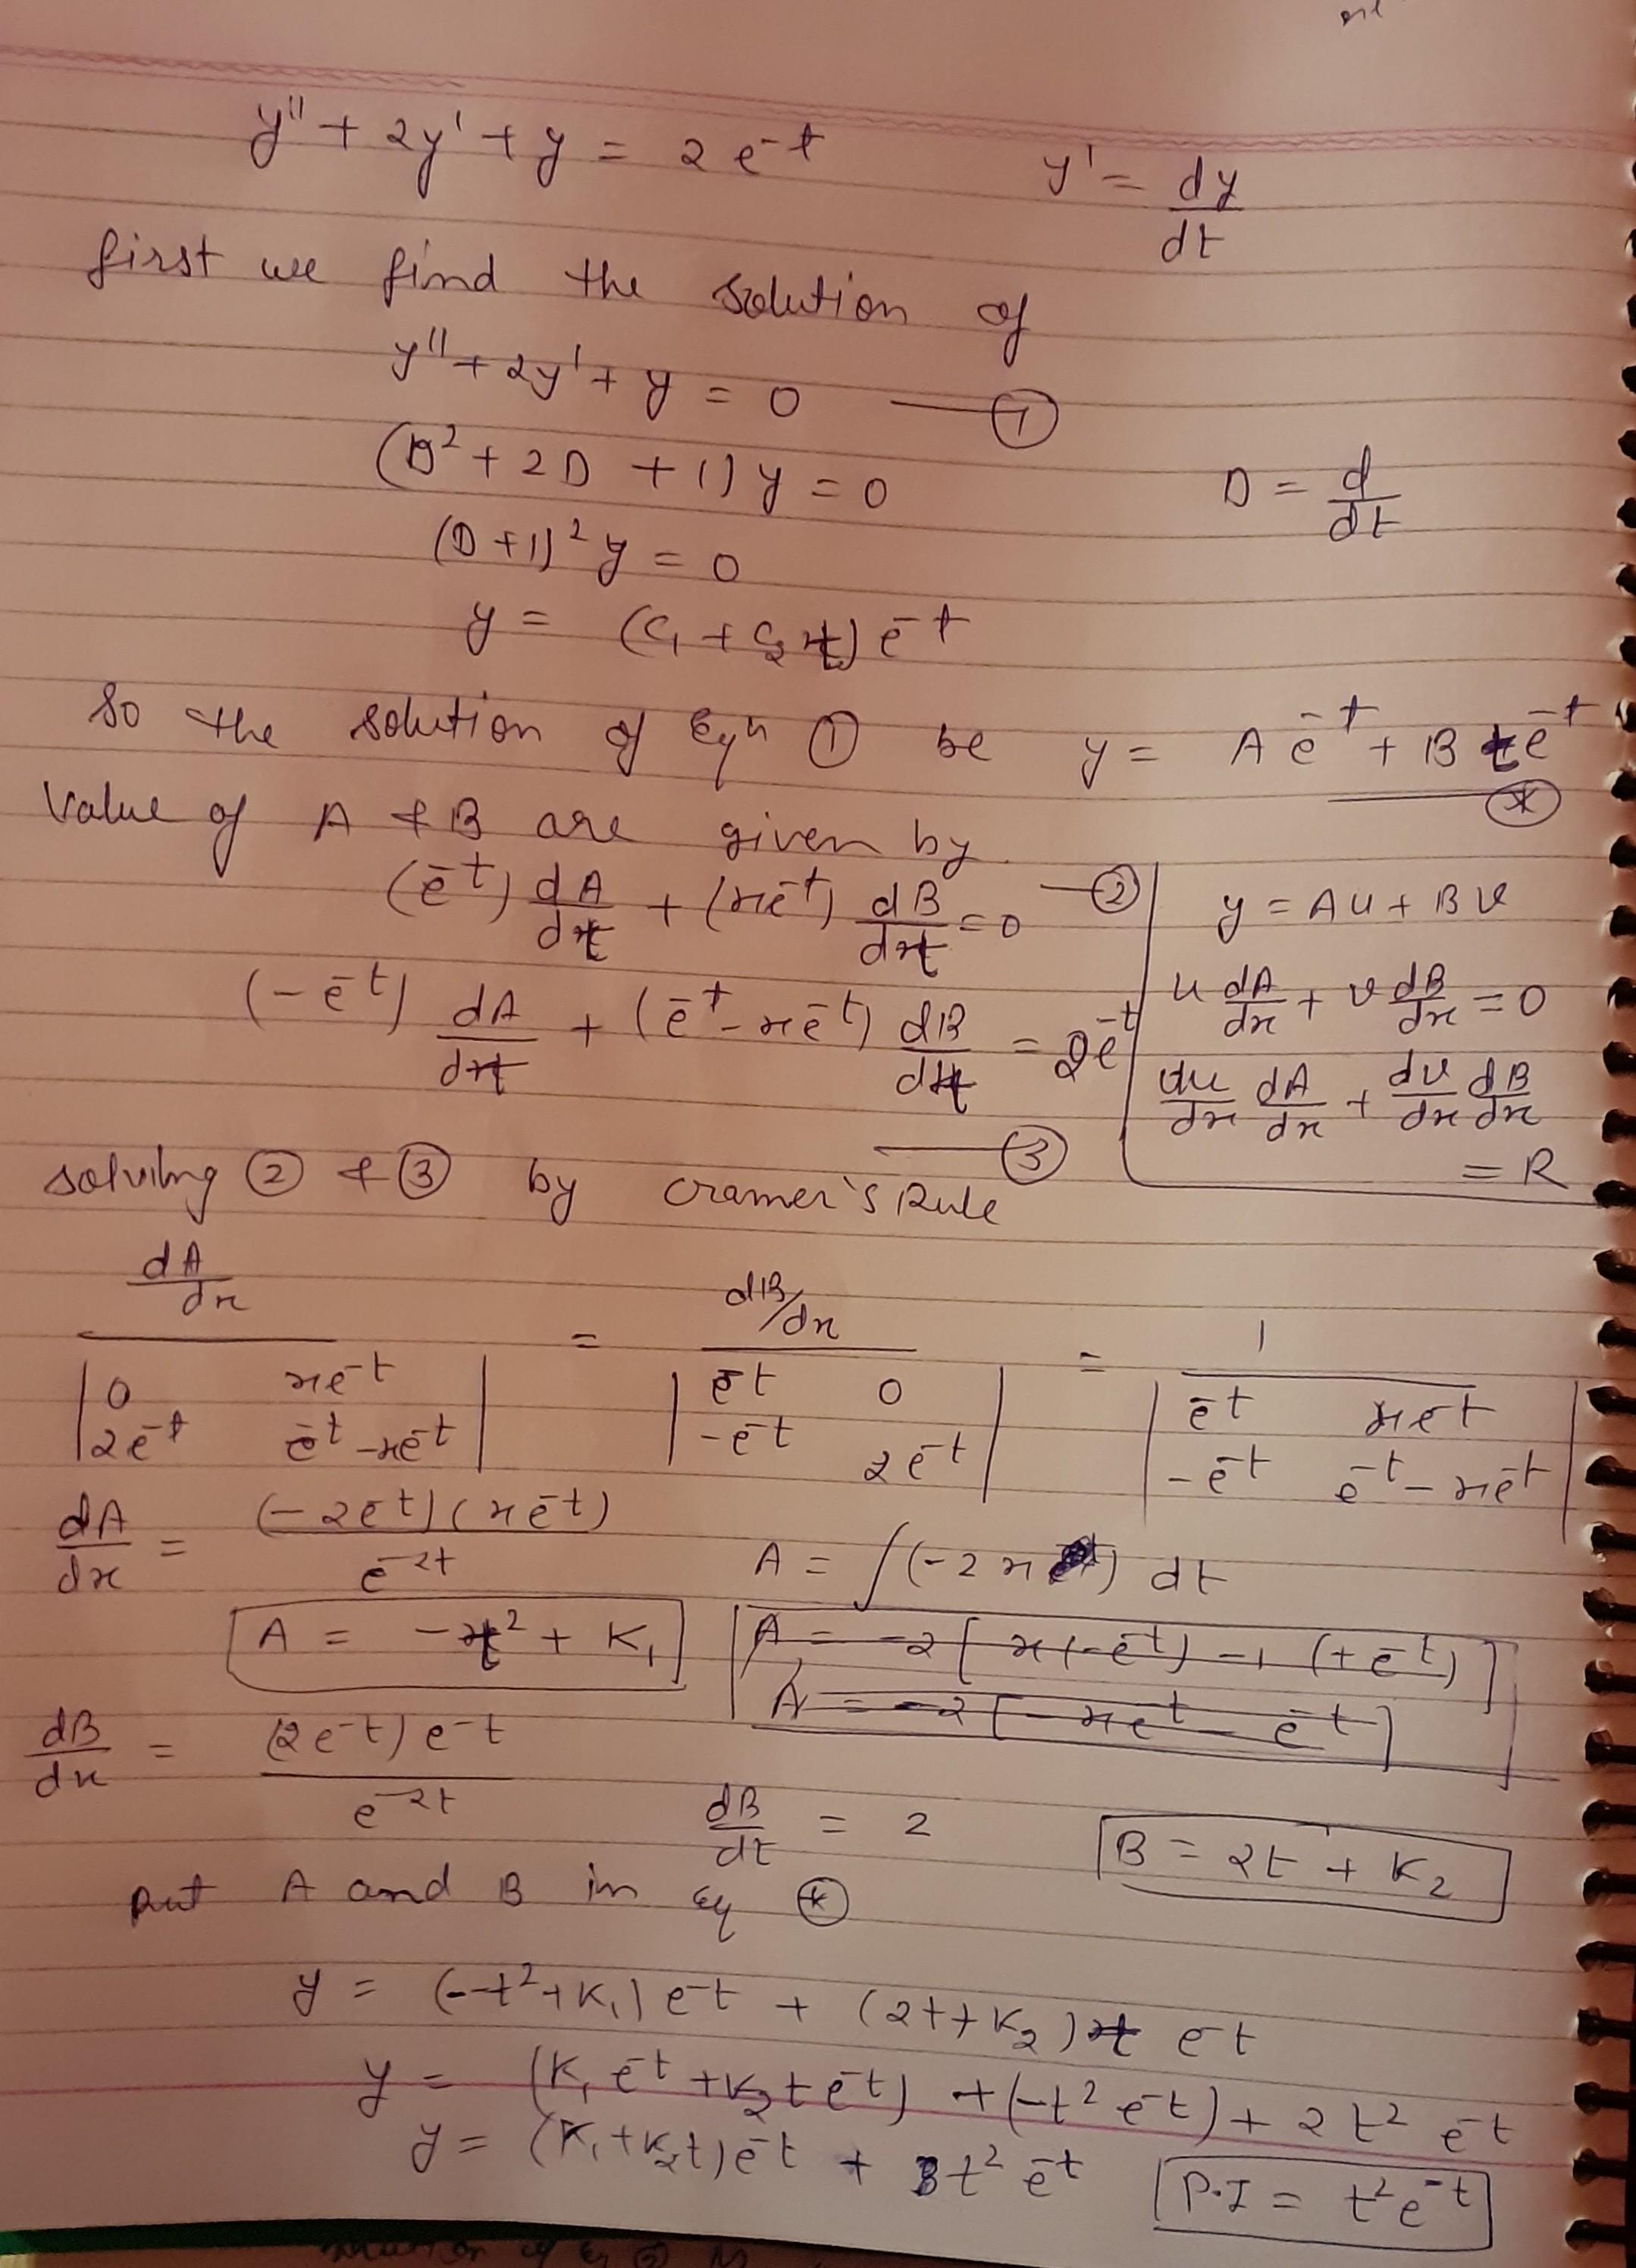 y'' + 2y' + y = 2e^-t    y' = dy/dt
first we find the solution of
y'' + 2y' + y = 0 — ①
(D² + 2D + 1) y = 0    D = d/dt
(D + 1)² y = 0
y = (C₁ + C₂t) e^-t
So the solution of Eqn ① be y = A e^-t + B t e^-t — ⊛
Value of A & B are given by
(e^-t) dA/dt + (xe^-t) dB/dt = 0 — ②
(-e^-t) dA/dt + (e^-t - xe^-t) dB/dt = 2e^-t — ③
y = Au + Bv
u dA/dx + v dB/dx = 0
du/dx dA/dx + dv/dx dB/dx
= R
solving ② & ③ by Cramer's Rule
(dA/dx) / |0 xe^-t; 2e^-t e^-t - xe^-t| = (dB/dx) / |e^-t 0; -e^-t 2e^-t| = 1 / |e^-t xe^-t; -e^-t e^-t - xe^-t|
dA/dx = (-2e^-t)(xe^-t) / e^-2t    A = ∫(-2x) dt
A = -t² + K₁    A = -2[x(-e^-t) - 1(+e^-t)]
A = -2[-xe^-t - e^-t]
dB/dx = (2e^-t) e^-t / e^-2t    dB/dt = 2    B = 2t + K₂
put A and B in Eq ⊛
y = (-t² + K₁) e^-t + (2t + K₂) t e^-t
y = (K₁ e^-t + K₂ t e^-t) + (-t² e^-t) + 2t² e^-t
y = (K₁ + K₂t) e^-t + t² e^-t    P.I = t² e^-t